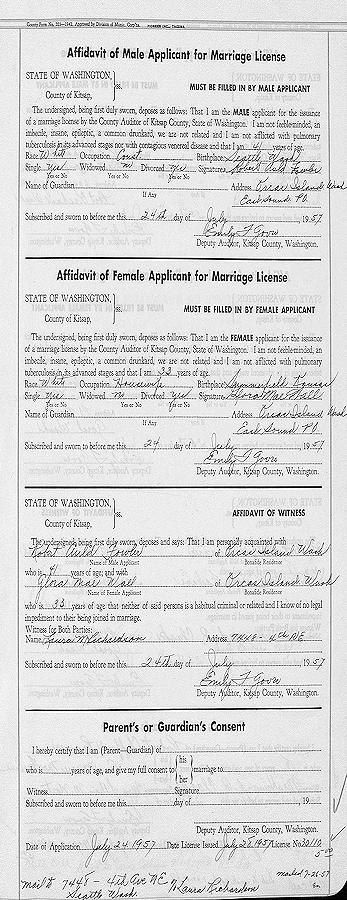 County Form No. 323—1942. Approved by Division of Munic. Corp'ns. PIONEER INC., TACOMA
Affidavit of Male Applicant for Marriage License
STATE OF WASHINGTON, } ss. MUST BE FILLED IN BY MALE APPLICANT
County of Kitsap,
The undersigned, being first duly sworn, deposes as follows: That I am the MALE applicant for the issuance
of a marriage license by the County Auditor of Kitsap County, State of Washington. I am not feebleminded, an
imbecile, insane, epileptic, a common drunkard, we are not related and I am not afflicted with pulmonary
tuberculosis in its advanced stages nor with contagious venereal disease and that I am 41 years of age.
Race White Occupation Const Birthplace Seattle Wash
Single yes Widowed no Divorced yes Signature Robert Auld Fowler
Yes or No Yes or No Yes or No
Name of Guardian Address Orcas Island Wash
If Any East Sound PO.
Subscribed and sworn to before me this 24th day of July 1957
Emily F Goon
Deputy Auditor, Kitsap County, Washington.
Affidavit of Female Applicant for Marriage License
STATE OF WASHINGTON, } ss. MUST BE FILLED IN BY FEMALE APPLICANT
County of Kitsap,
The undersigned, being first duly sworn, deposes as follows: That I am the FEMALE applicant for the issuance
of a marriage license by the County Auditor of Kitsap County, State of Washington. I am not feebleminded, an
imbecile, insane, epileptic, a common drunkard, we are not related and I am not afflicted with pulmonary
tuberculosis in its advanced stages and that I am 33 years of age.
Race White Occupation Housewife Birthplace Summerfield Kansas
Single yes Widowed no Divorced yes Signature Glora Mae Wall
Yes or No Yes or No Yes or No
Name of Guardian Address Orcas Island Wash
If Any East Sound PO
Subscribed and sworn to before me this 24 day of July 1957
Emily F Goon
Deputy Auditor, Kitsap County, Washington.
STATE OF WASHINGTON, } ss. AFFIDAVIT OF WITNESS
County of Kitsap,
The undersigned, being first duly sworn, deposes and says: That I am personally acquainted with
Robert Auld Fowler of Orcas Island Wash
Name of Male Applicant Bonafide Residence
who is 41 years of age; and with
Glora Mae Wall of Orcas Island Wash
Name of Female Applicant Bonafide Residence
who is 33 years of age that neither of said persons is a habitual criminal or related and I know of no legal
impediment to their being joined in marriage.
Witness for Both Parties:
Name Laura W Richardson Address 7448 - 4th NE
Subscribed and sworn to before me this 24th day of July 1957
Emily F Goon
Deputy Auditor, Kitsap County, Washington.
Parent's or Guardian's Consent
I hereby certify that I am (Parent—Guardian) of
who is years of age, and give my full consent to { his her } marriage to
Witness Signature
Subscribed and sworn to before me this day of 19
Deputy Auditor, Kitsap County, Washington.
Date of Application July 24 1957 Date License Issued July 28 1957 License No. 30110
5.00
mailed 7-26-57
mail to 7448 - 4th Ave NE % Laura Richardson
Seattle Wash.